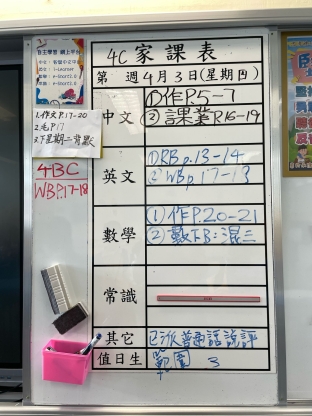 自主學習 網上平台
4C家課表
第 週4月3日(星期四)
中文
①作P.5-7
②課業P.16-19
1.作文P.17-20
2.毛P.17
3.下星期二背默
英文
①RB p.13-14
②WB p.17-18
4BC
WB P.17-18
數學
(1)作P.20-21
(2)數下B:混三
常識
其它
已派普通話說評
值日生
範圍 3